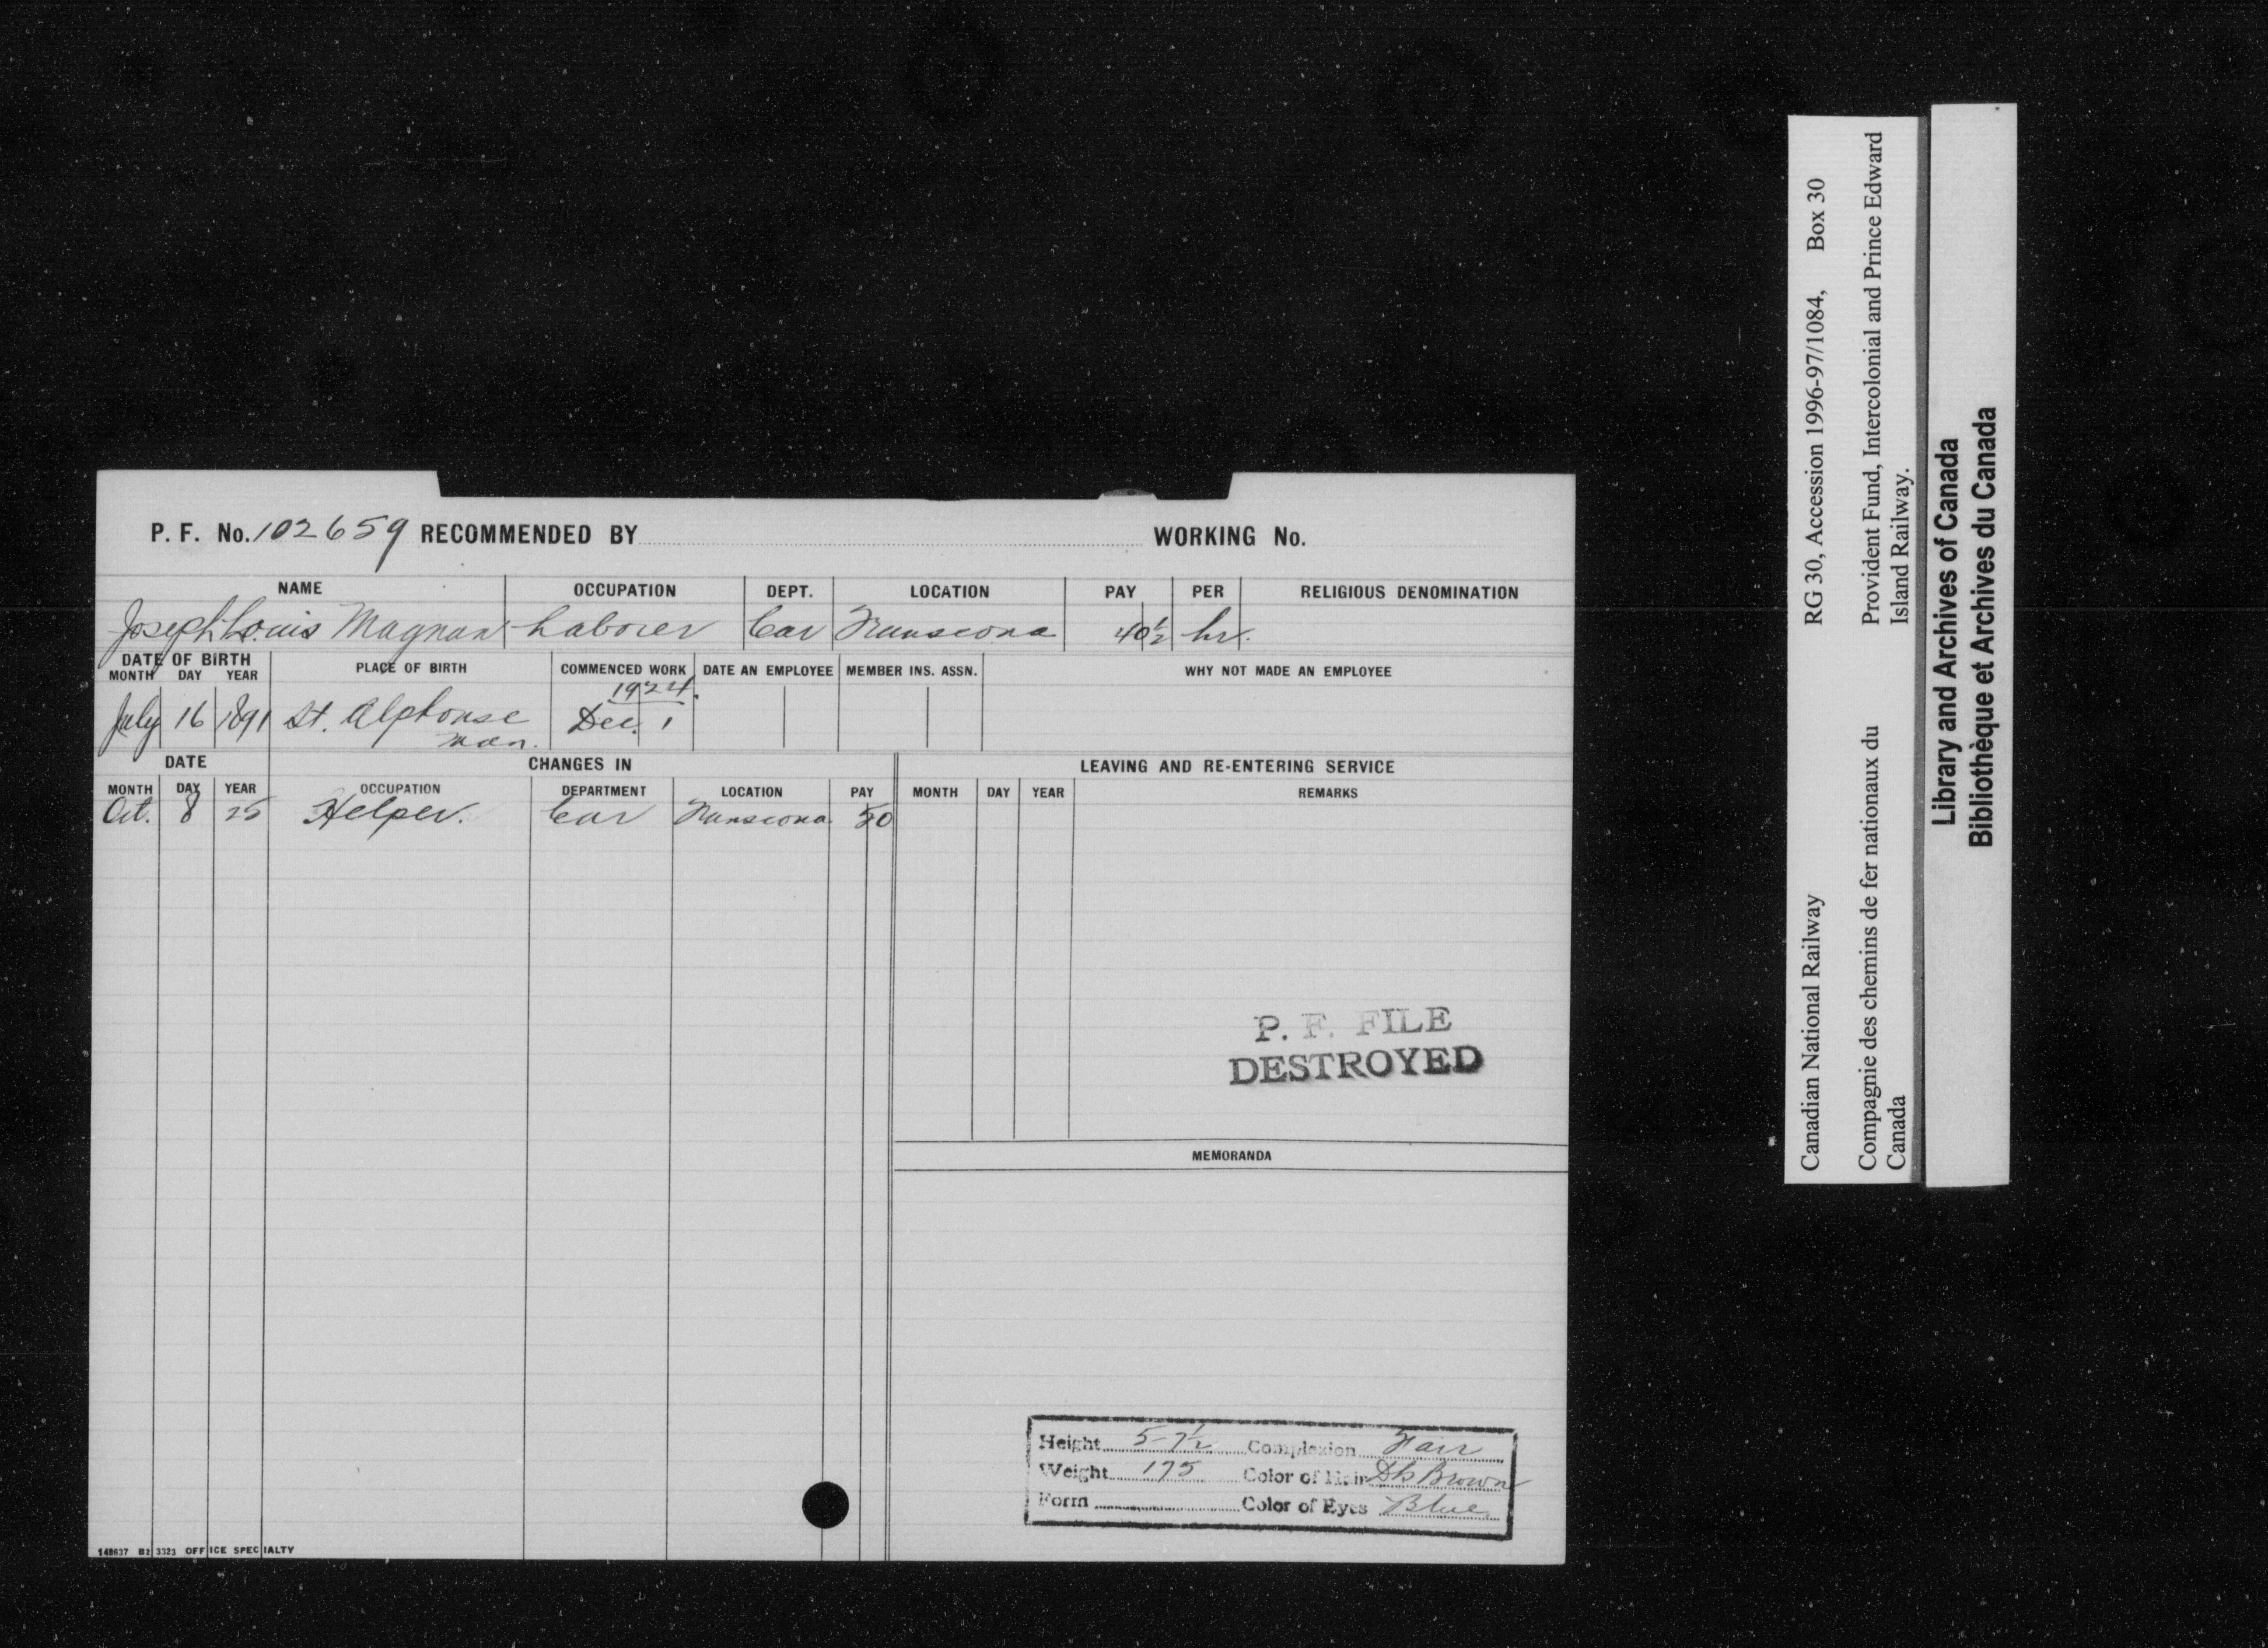 P. F. No. 102659 RECOMMENDED BY WORKING No.
NAME OCCUPATION DEPT. LOCATION PAY PER RELIGIOUS DENOMINATION
Joseph Louis Magnan Laborer Car Transcona 40½ hr.
DATE OF BIRTH PLACE OF BIRTH COMMENCED WORK DATE AN EMPLOYEE MEMBER INS. ASSN. WHY NOT MADE AN EMPLOYEE
MONTH DAY YEAR
1924.
July 16 1891 St. Alphonse Dec. 1
Man.
DATE CHANGES IN LEAVING AND RE-ENTERING SERVICE
MONTH DAY YEAR OCCUPATION DEPARTMENT LOCATION PAY MONTH DAY YEAR REMARKS
Oct. 8 25 Helper. Car Transcona 50
P. F. FILE
DESTROYED
MEMORANDA
Height 5-7½ Complexion Fair
Weight 175 Color of Hair Dk Brown
Form Color of Eyes Blue
148637 B2 3323 OFFICE SPECIALTY
Canadian National Railway RG 30, Accession 1996-97/1084, Box 30
Compagnie des chemins de fer nationaux du Provident Fund, Intercolonial and Prince Edward
Canada Island Railway.
Library and Archives of Canada
Bibliothèque et Archives du Canada